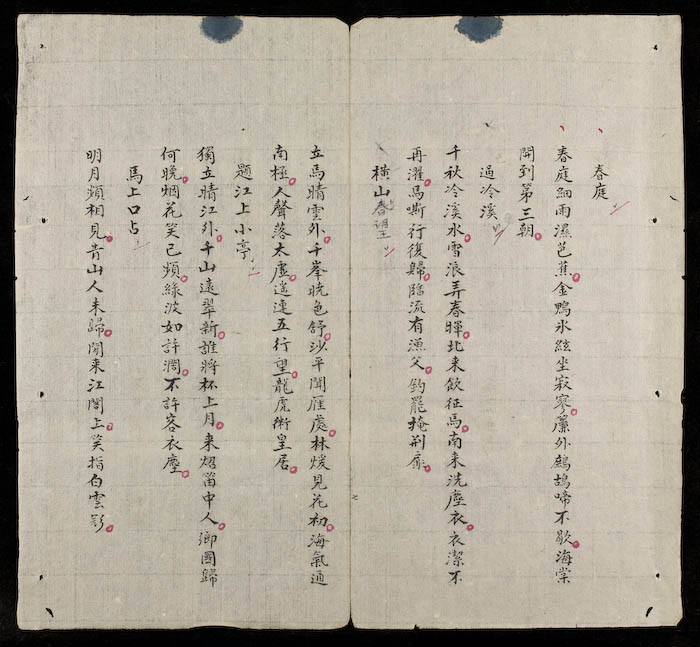 春庭
春庭細雨濕芭蕉金鴨氷絃坐寂寥簾外鷓鴣啼不歇海棠
開到第三朝
過冷溪
千秋冷溪水雪浪弄春暉北来飲征馬南来洗塵衣衣潔不
再濯馬嘶行復歸臨流有漁父釣罷掩荆扉
横山春望
立馬晴雲外千峯晓色舒沙平聞雁處林煖見花初海氣通
南極人聲落太虛逶連五行望龍虎衛皇居
題江上小亭
獨立晴江外千山遠翠新誰將杯上月来炤笛中人鄉國歸
何晚烟花笑已頻綠波如許濶不許客衣塵
馬上口占
明月頻相見青山人未歸閒来江閣上笑指白雲影